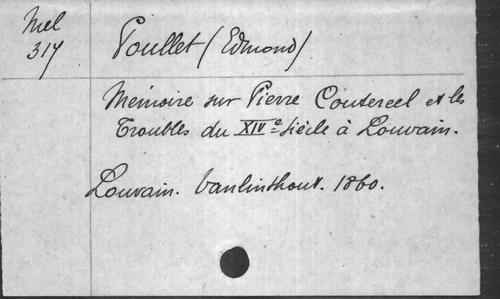 Mel
317
Poullet (Edmond)
Mémoire sur Pierre Coutereel et les
Troubles du XIVe siècle à Louvain.
Louvain. Vanlinthout. 1860.